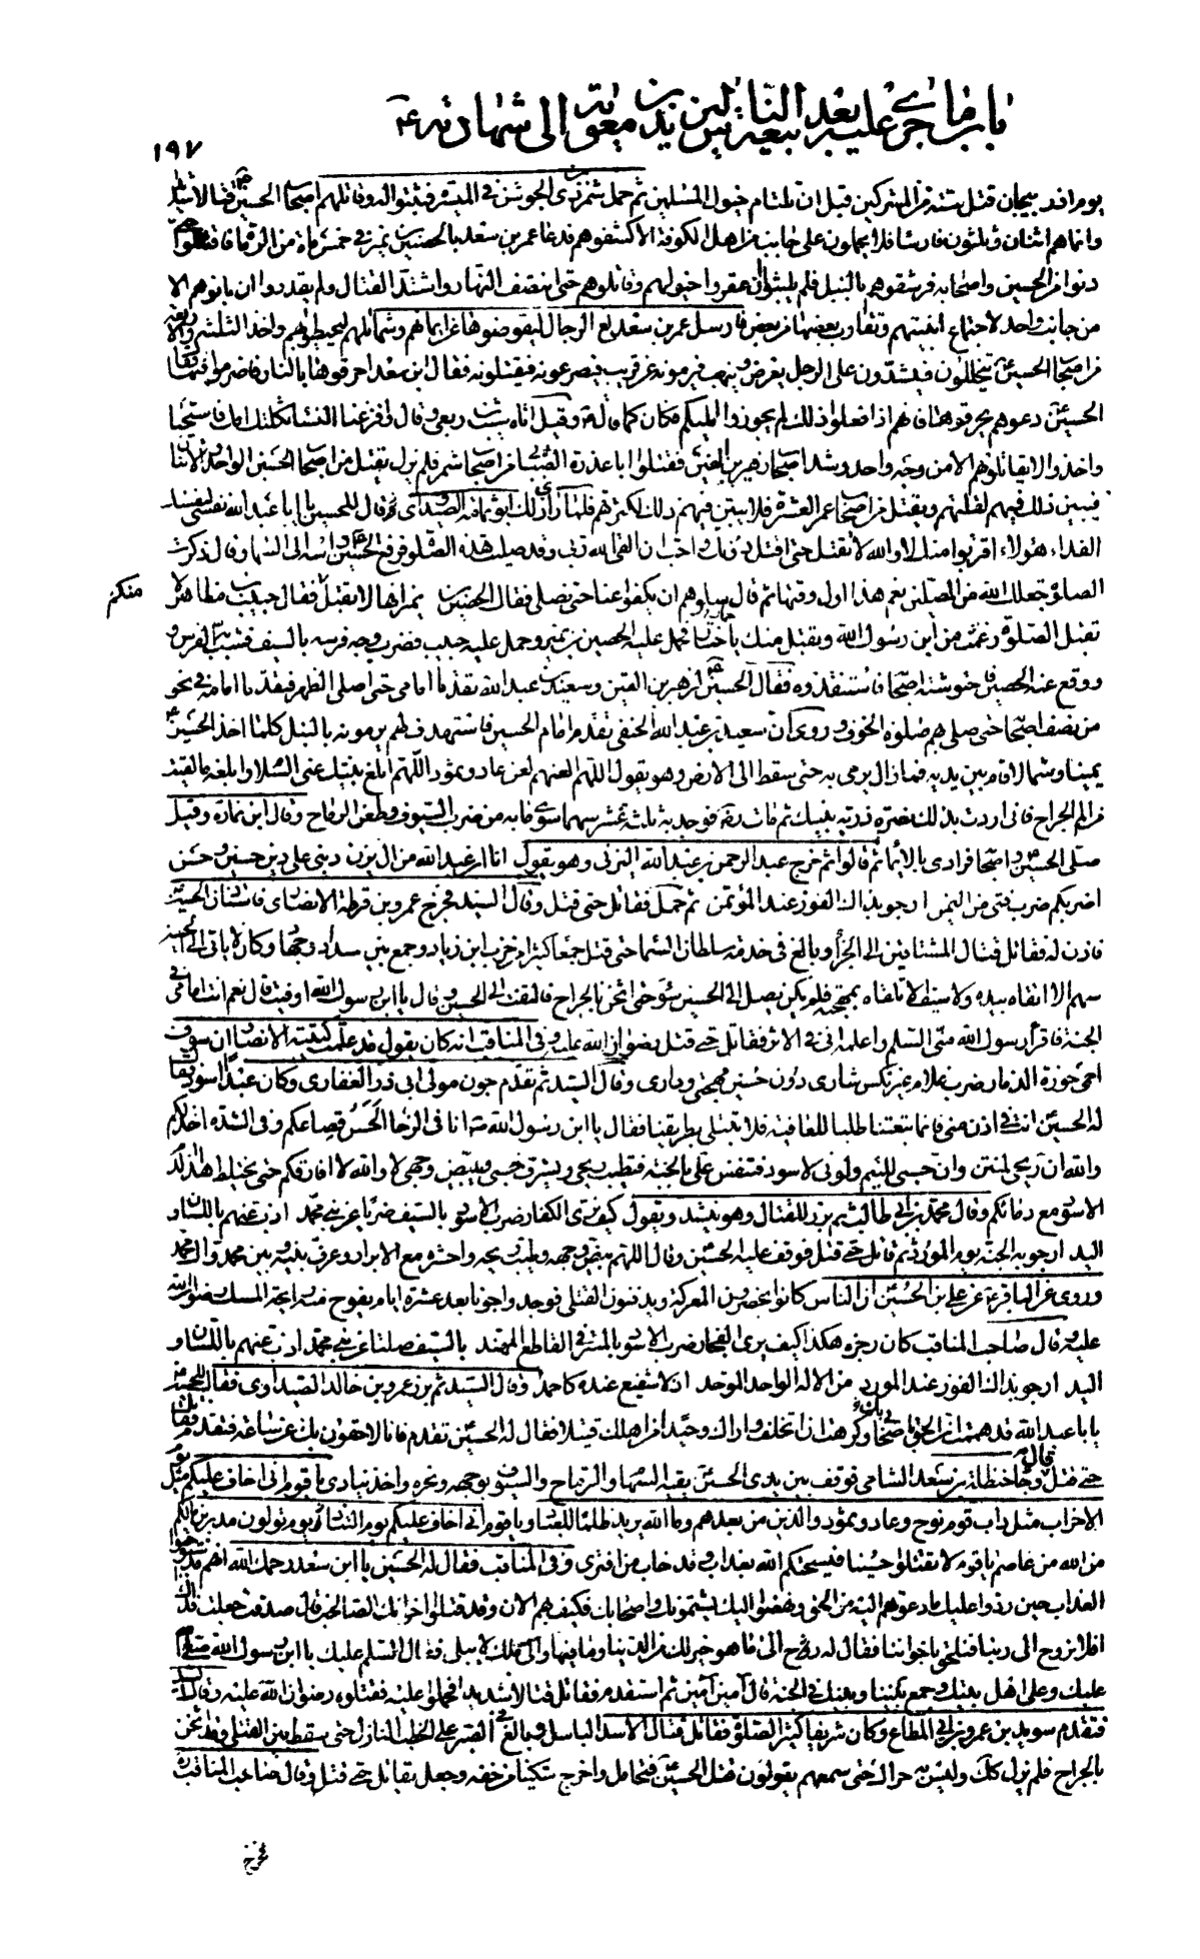 باب ما جرى عليه بعد بيعة الناس ليزيد بن معوية الى شهادته ع
١٩٧
يوم اذربيجان قتل ستة من المشركين قبل ان تلتئام خيول المسلمين ثم حمل شمر بن ذى الجوشن فى الميسرة فثبتوا له وقاتلهم اصحاب الحسين ع قتالا شديدا
وانما هم اثنان وثلثون فارسا فلا يحملون على جانب من اهل الكوفة الا كشفوهم فدعا عمر بن سعد بالحصين بن نمير فى خمسماة من الرماة فاقبلوا حتى
دنوا من الحسين واصحابه فرشقوهم بالنبل فلم يلبثوا ان عقروا خيولهم وقاتلوهم حتى انتصف النهار واشتد القتال ولم يقدروا ان ياتوهم الا
من جانب واحد لاجتماع ابنيتهم وتقارب بعضها من بعض فارسل عمر بن سعد لع الرجال ليقوضوها عن ايمانهم وشمائلهم ليحيطوا بهم واخذ الثلثة والاربعة
من اصحاب الحسين يتخللون فيشدون على الرجل يعرض وينهب فيرمونه عن قريب فيصرعونه فيقتلونه فقال ابن سعد احرقوها بالنار فاضرموا فيها فقال
الحسين ع دعوهم يحرقوها فانهم اذا فعلوا ذلك لم يجوزوا اليكم فكان كما قال ع وقيل اتاه شبث بن ربعى وقال افزعنا النساء ثكلتك امك فاستحيا
واخذوا لا يقاتلونهم الا من وجه واحد وشد اصحاب زهير بن القين فقتلوا ابا عذرة الضبابى من اصحاب شمر فلم يزل يقتل من اصحاب الحسين الواحد والاثنان
فيبين ذلك فيهم لقلتهم ويقتل من اصحاب عمر العشرة فلا يبين فيهم ذلك لكثرتهم فلما راى ذلك ابو ثمامة الصيداوى قال للحسين يا ابا عبد الله نفسى لنفسك
الفداء هؤلاء اقتربوا منك لا والله لا تقتل حتى اقتل دونك واحب ان القى الله ربى وقد صليت هذه الصلوة فرفع الحسين ع راسه الى السماء وقال ذكرت
الصلوة جعلك الله من المصلين نعم هذا اول وقتها ثم قال سلوهم ان يكفوا عنا حتى نصلى فقال الحصين بن نمير انها لا تقبل فقال حبيب بن مظاهر لا
منكم
تقبل الصلوة زعمت من ابن رسول الله وتقبل منك يا ختار فحمل عليه الحصين بن نمير وحمل عليه حبيب فضرب وجه فرسه بالسيف فشب به الفرس و
ووقع عنه الحصين فاحتوشته اصحابه فاستنقذوه فقال الحسين ع لزهير بن القين وسعيد بن عبد الله تقدما امامى حتى اصلى الظهر فتقدما امامه فى نحو
من نصف اصحابه حتى صلى بهم صلوة الخوف وروى ان سعيد بن عبد الله الحنفى تقدم امام الحسين فاستهدف لهم يرمونه بالنبل كلما اخذ الحسين ع
يمينا وشمالا قام بين يديه فما زال يرمى به حتى سقط الى الارض وهو يقول اللهم العنهم لعن عاد وثمود اللهم ابلغ نبيك عنى السلام وابلغه ما لقيت
من الم الجراح فانى اردت بذلك نصرة ذرية نبيك ثم مات ره فوجد به ثلثة عشر سهما سوى ما به من ضرب السيوف وطعن الرماح وقال ابن نما ره وقيل
صلى الحسين ع واصحابه فرادى بالايماء ثم قالوا ثم خرج عبد الرحمن بن عبد الله اليزنى وهو يقول انا ابن عبد الله من ال يزن دينى على دين حسين وحسن
اضربكم ضرب فتى من اليمن ارجو بذاك الفوز عند المؤتمن ثم حمل فقاتل حتى قتل وقال السيد فخرج عمرو بن قرظة الانصارى فاستاذن الحسين ع
فاذن له فقاتل قتال المشتاقين الى الجزاء وبالغ فى خدمة سلطان السماء حتى قتل جمعا كثيرا من حزب ابن زياد وجمع بين سداد وجهاد وكان لا ياتى الى الحسين
سهم الا اتقاه بيده ولا سيف الا تلقاه بمهجته فلم يكن يصل الى الحسين سوء حتى اثخن بالجراح فالتفت الى الحسين ع وقال يا ابن رسول الله اوفيت قال نعم انت امامى فى
الجنة فاقرأ رسول الله منى السلم واعلمه انى فى الاثر فقاتل حتى قتل رضوان الله عليه وفى المناقب انه كان يقول قد علمت كتيبة الانصار ان سوف
احمى حوزة الذمار ضرب غلام غير نكس شارى دون حسين مهجتى ودارى وقال السيد ثم تقدم جون مولى ابى ذر الغفارى وكان عبدا اسود فقال
له الحسين ع انت فى اذن منى فانما تبعتنا طلبا للعافية فلا تبتلى بطريقنا فقال يا ابن رسول الله ص انا فى الرخاء الحس قصاعكم وفى الشدة اخذلكم
والله ان ريحى لمنتن وان حسبى للئيم ولونى لاسود فتنفس على بالجنة فتطيب ريحى ويشرف حسبى ويبيض وجهى لا والله لا افارقكم حتى يختلط هذا الدم
الاسود مع دمائكم وقال محمد بن ابى طالب ثم برز للقتال وهو ينشد ويقول كيف يرى الكفار ضرب الاسود بالسيف ضربا عن بنى محمد اذب عنهم باللسان و
اليد ارجو به الجنة يوم المورد ثم قاتل حتى قتل فوقف عليه الحسين ع وقال اللهم بيض وجهه وطيب ريحه واحشره مع الابرار وعرف بينه وبين محمد وال محمد
وروى عن الباقر ع عن على بن الحسين ع ان الناس كانوا يحضرون المعركة ويدفنون القتلى فوجدوا جونا بعد عشرة ايام يفوح منه رائحة المسك رضوان الله
عليه وقال صاحب المناقب كان رجزه هكذا كيف يرى الفجار ضرب الاسود بالمشرفى القاطع المهند بالسيف صلتا عن بنى محمد اذب عنهم باللسان و
اليد ارجو بذاك الفوز عند المورد من الاله الواحد الموحد اذ لا شفيع عنده كاحمد وقال السيد ثم برز عمرو بن خالد الصيداوى فقال للحسين ع
يا با عبد الله قد هممت ان الحق باصحابى وكرهت ان اتخلف واراك وحيدا من اهلك قتيلا فقال له الحسين ع تقدم فانا لاحقون بك عن ساعة فتقدم فقاتل
حتى قتل قال وجاء حنظلة بن سعد الشامى فوقف بين يدى الحسين ع يقيه السهام والرماح والسيوف بوجهه ونحره واخذ ينادى يا قوم انى اخاف عليكم مثل يوم
الاحزاب مثل داب قوم نوح وعاد وثمود والذين من بعدهم وما الله يريد ظلما للعباد ويا قوم انى اخاف عليكم يوم التناد يوم تولون مدبرين ما لكم
من الله من عاصم يا قوم لا تقتلوا حسينا فيسحتكم الله بعذاب وقد خاب من افترى وفى المناقب فقال له الحسين يا ابن سعد رحمك الله انهم قد استوجبوا
العذاب حين ردوا عليك ما دعوتهم اليه من الحق ونهضوا اليك يشتمونك واصحابك فكيف بهم الان وقد قتلوا اخوانك الصالحين قال صدقت جعلت فداك
افلا نروح الى ربنا فنلحق باخواننا فقال له رح الى ما هو خير لك من الدنيا وما فيها والى ملك لا يبلى فقال السلم عليك يا ابن رسول الله صلى الله
عليك وعلى اهل بيتك وجمع بيننا وبينك فى الجنة قال امين امين ثم استقدم فقاتل قتالا شديدا فحملوا عليه فقتلوه رضوان الله عليه وقال السيد
فتقدم سويد بن عمرو بن ابى المطاع وكان شريفا كثير الصلوة فقاتل قتال الاسد الباسل وبالغ فى الصبر على الخطب النازل حتى سقط بين القتلى وقد اثخن
بالجراح فلم يزل كذلك وليس به حراك حتى سمعهم يقولون قتل الحسين ع فتحامل واخرج سكينا من خفه وجعل يقاتل حتى قتل وقال صاحب المناقب
فخرج